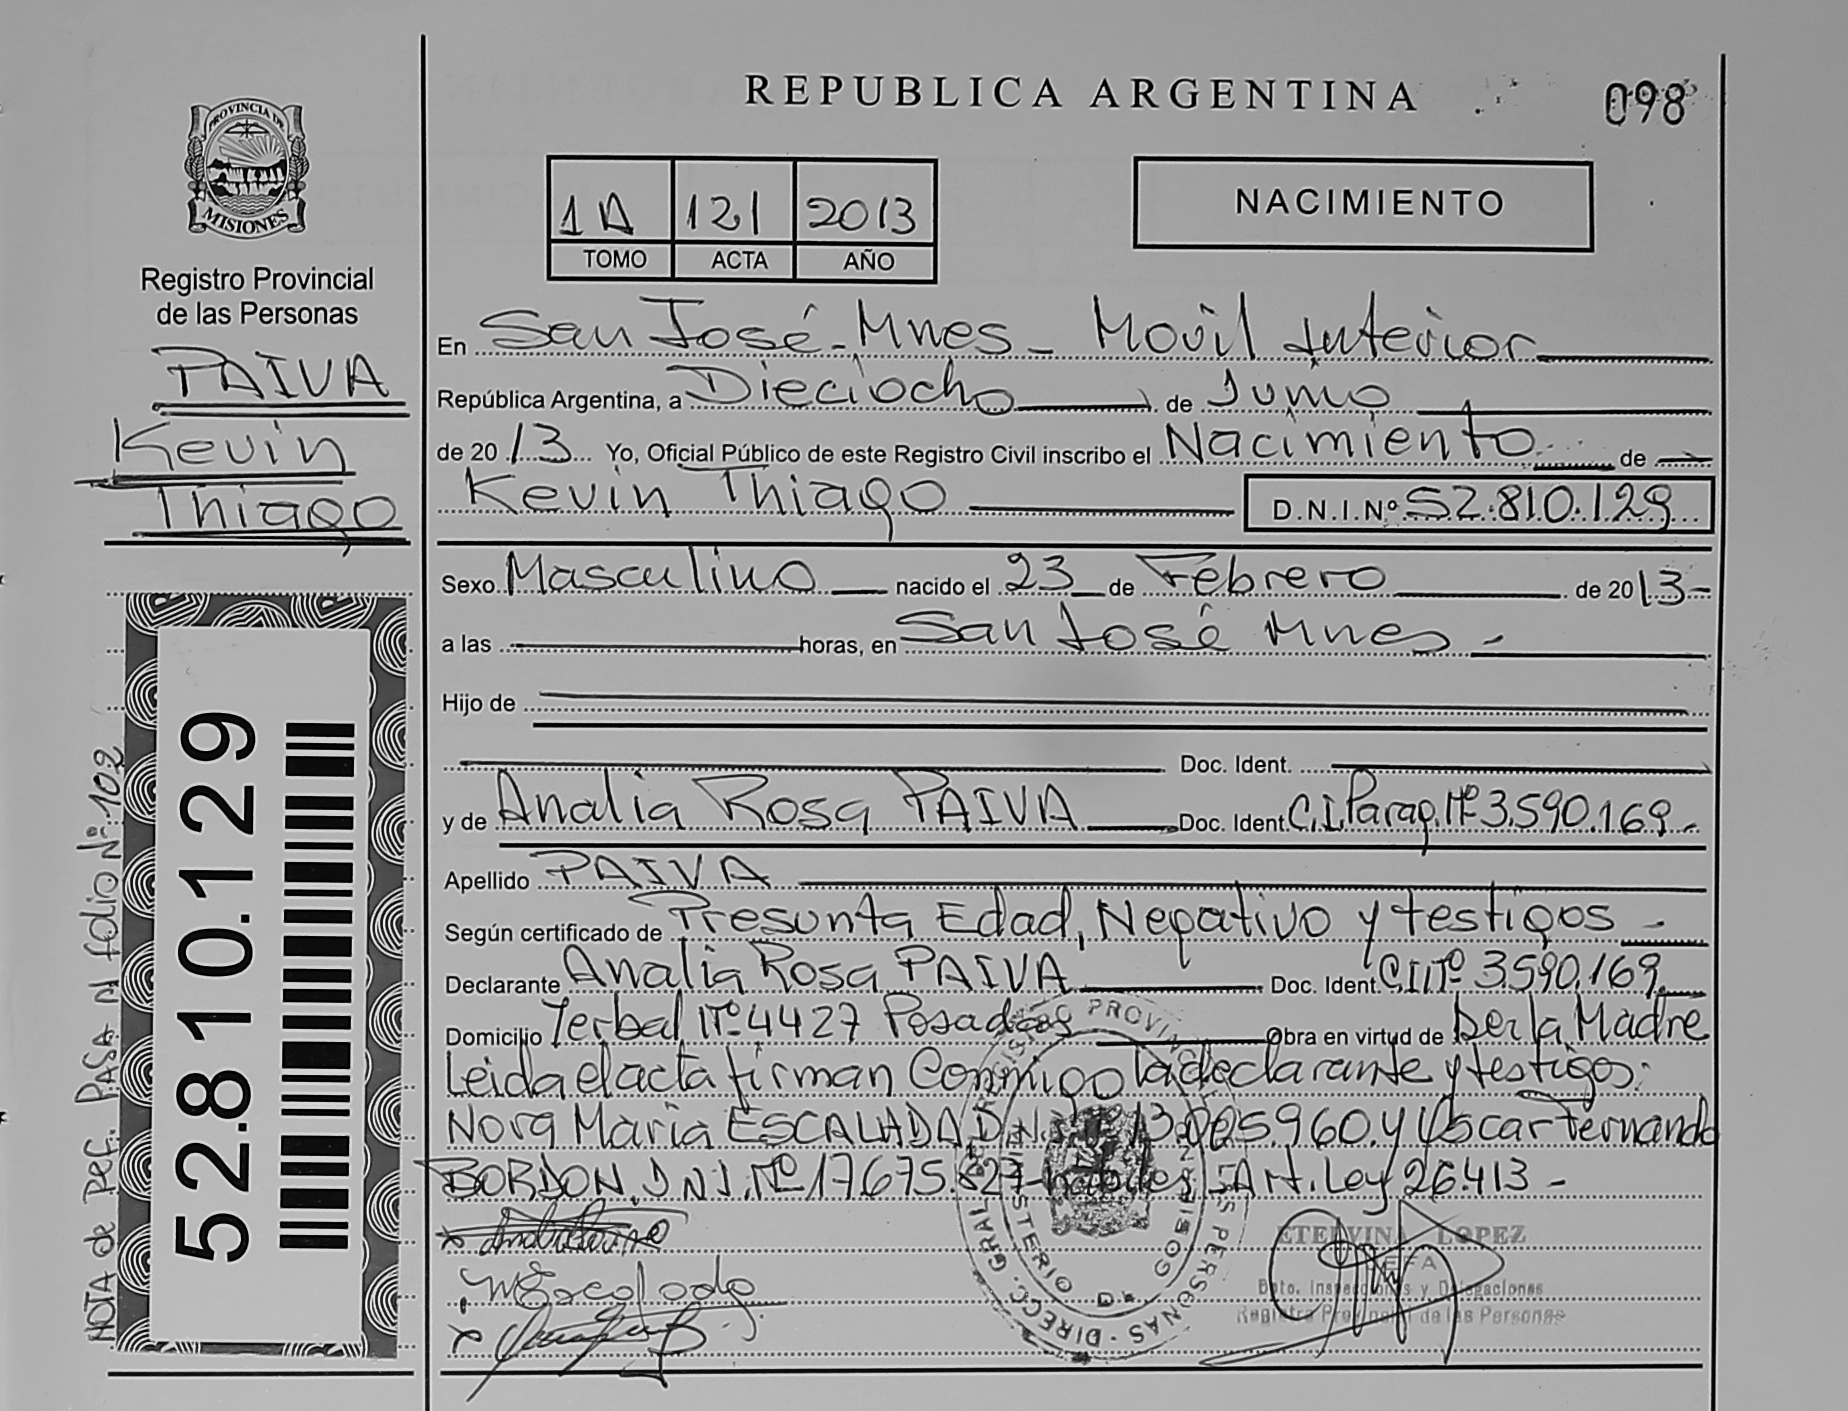 REPUBLICA ARGENTINA
098
PROVINCIA DE
MISIONES
Registro Provincial
de las Personas
PAIVA
Kevin
Thiago
1A 121 2013
TOMO ACTA AÑO
NACIMIENTO
En San José - Mnes - Movil Interior
República Argentina, a Dieciocho de Junio
de 2013 Yo, Oficial Público de este Registro Civil inscribo el Nacimiento de
Kevin Thiago D.N.I.Nº 52.810.129
Sexo Masculino nacido el 23 de Febrero de 2013-
a las horas, en San José Mnes -
Hijo de
Doc. Ident.
y de Analia Rosa PAIVA Doc. Ident. C.I. Parag. Nº 3.590.169.-
Apellido PAIVA
Según certificado de Presunta Edad, Negativo y testigos -
Declarante Analia Rosa PAIVA Doc. Ident. C.I Nº 3.590.169.
Domicilio Yerbal Nº 4427 Posadas Obra en virtud de Ser la Madre
Leida el acta firman Conmigo la declarante y testigos:
Nora Maria ESCALADA D.N.I. 13.005.960. y Oscar Fernando
BORDON. D.N.I. Nº 17.675.827- habiles Art. Ley 26.413 -
52.810.129
NOTA de Ref. PASA A folio Nº 102
ETELVINA LOPEZ
JEFA
Dpto. Inspecciones y Delegaciones
Registro Provincial de las Personas
REGISTRO PROVINCIAL DE LAS PERSONAS - DIRECC. GRAL.
MINISTERIO DE GOBIERNO